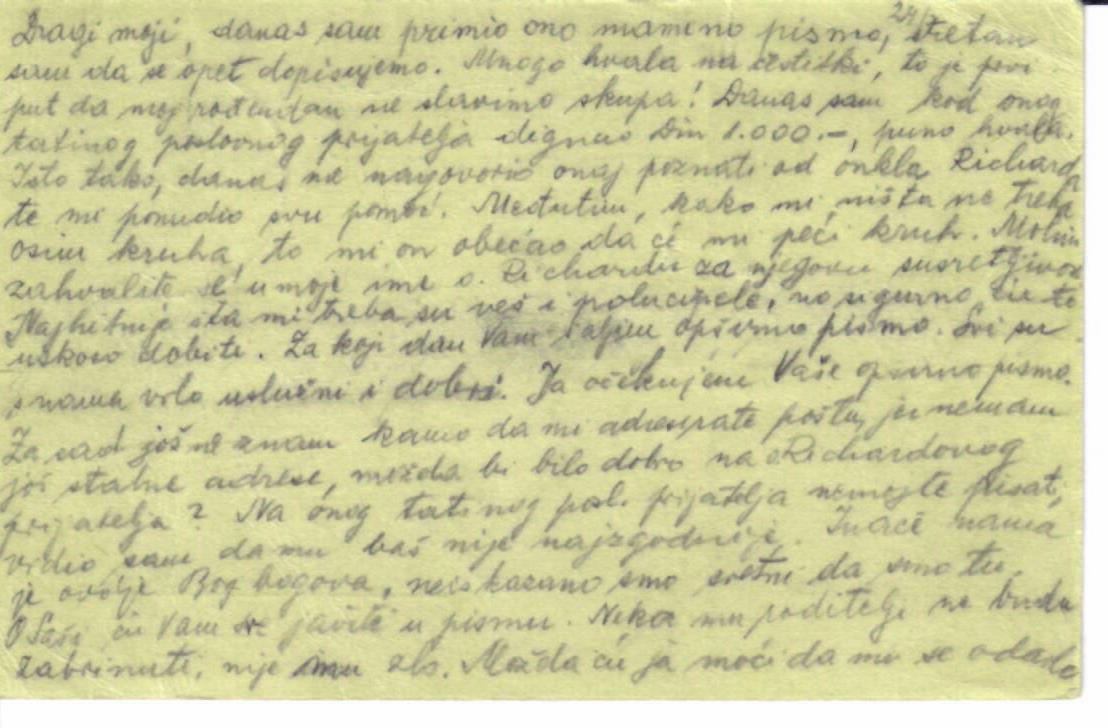 24/
Dragi moji, danas sam primio ono mameno pismo, sretan
sam da se opet dopisujemo. Mnogo hvala na čestitki, to je prvi
put da moj rođendan ne slavimo skupa! Danas sam kod onog
tatinog poslovnog prijatelja dignuo Din 1.000.-, puno hvala.
Isto tako, danas me nagovorio onaj poznati od onkla Richarda
te mi ponudio svu pomoć. Međutim, kako mi ništa ne treba
osim kruha, to mi on obećao da će mi peći kruh. Molim
zahvalite se u moje ime o. Richardu za njegovu susretljivost
Najhitnije šta mi treba su veš i polucipele, no sigurno ću to
uskoro dobiti. Za koji dan Vam šaljem opširno pismo. Svi su
s nama vrlo uslužni i dobri. Ja očekujem Vaše opširno pismo.
Za sad još ne znam kamo da mi adresirate poštu, jer nemam
još stalne adrese, možda bi bilo dobro na Richardovog
prijatelja? Na onog tatinog posl. prijatelja nemojte pisati,
vidio sam da mu baš nije najzgodnije. Inače nama
je ovdje Bog bogova, neiskazano smo sretni da smo tu.
O Saši ću Vam sve javiti u pismu. Neka mu roditelji ne budu
zabrinuti, nije mu zlo. Možda ću ja moći da mu se odade